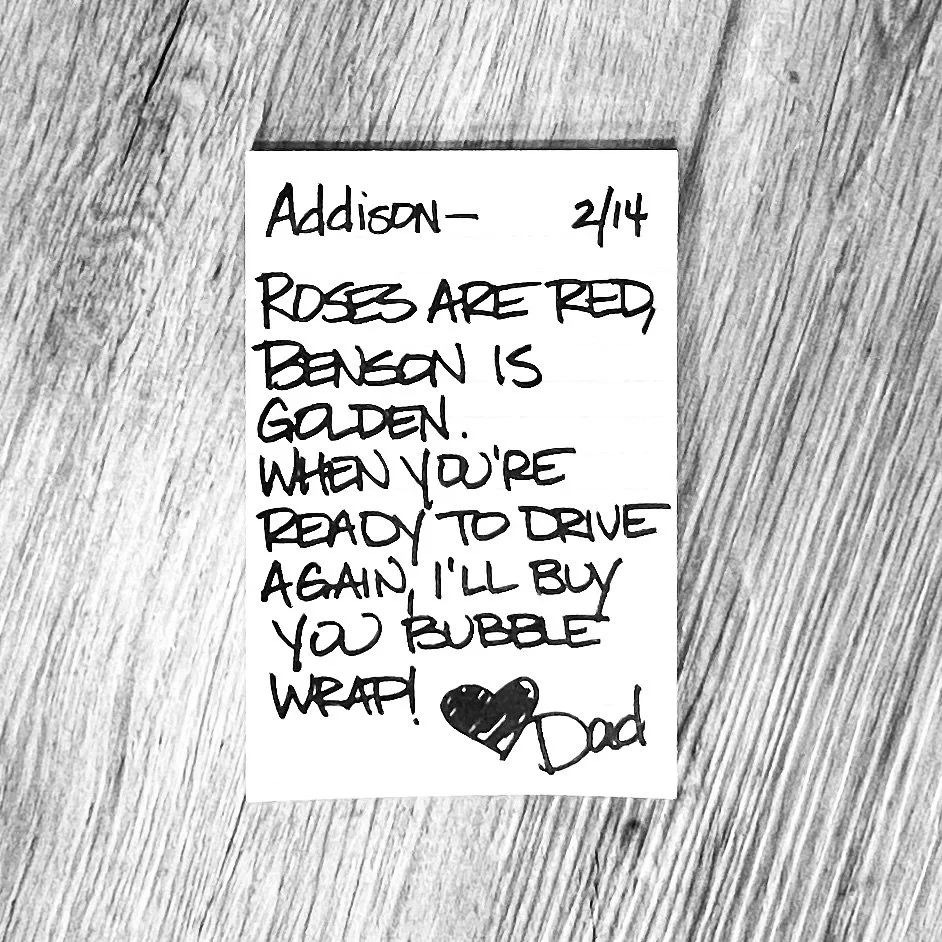 Addison— 2/14
ROSES ARE RED,
BENSON IS
GOLDEN.
WHEN YOU'RE
READY TO DRIVE
AGAIN, I'LL BUY
YOU BUBBLE
WRAP! ♥ Dad